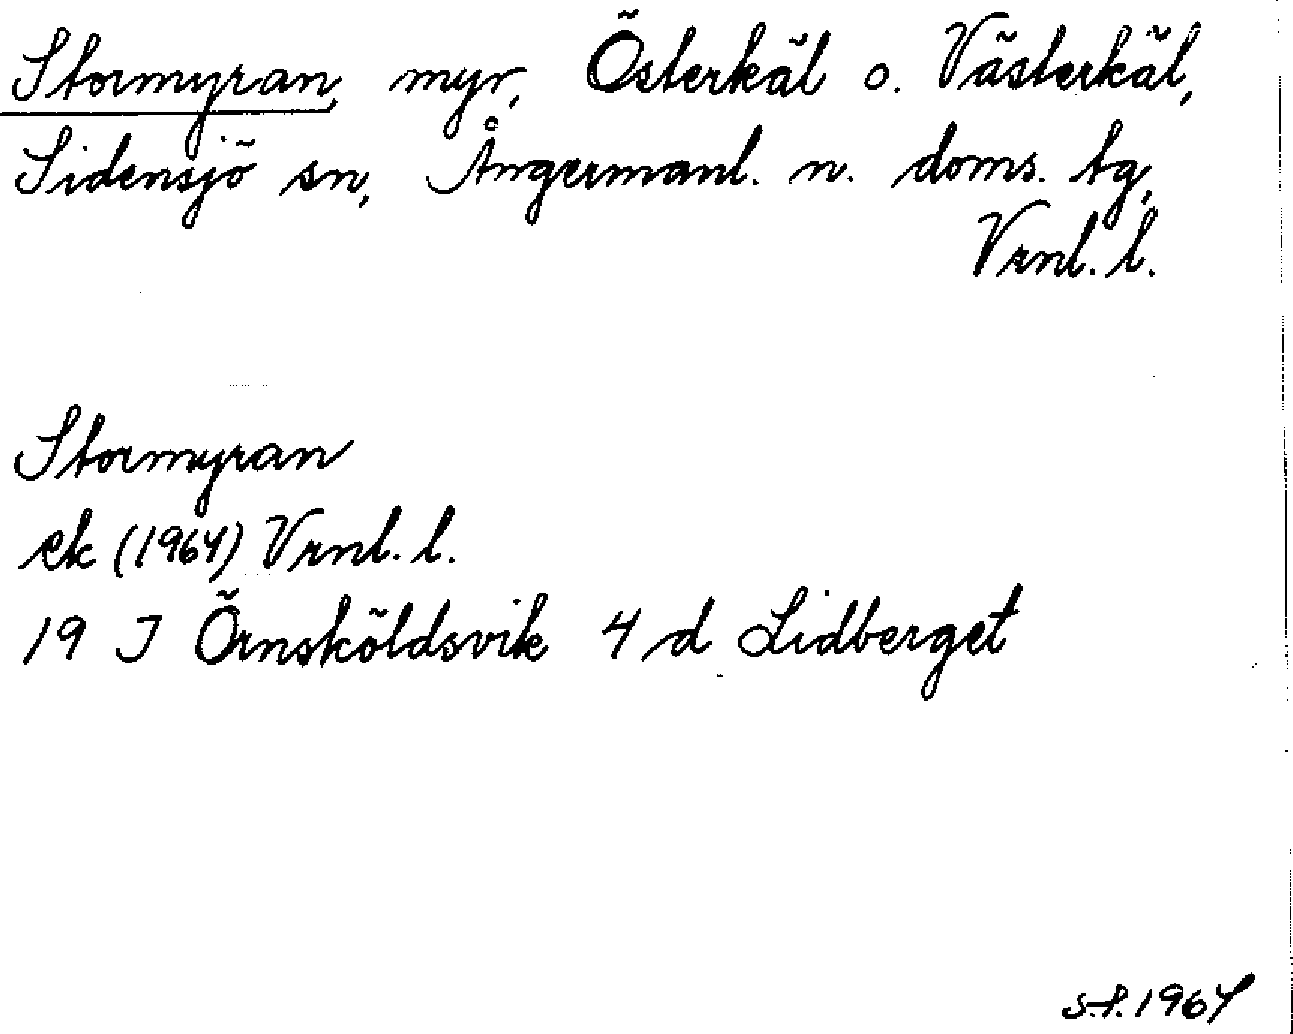 Stormyran, myr, Österkäl o. Västerkäl,
Sidensjö sn, Ångermanl. n. doms. tg,
Vrnl. l.
Stormyran
ek (1964) Vrnl. l.
19 J Örnsköldsvik 4 d Lidberget
1964